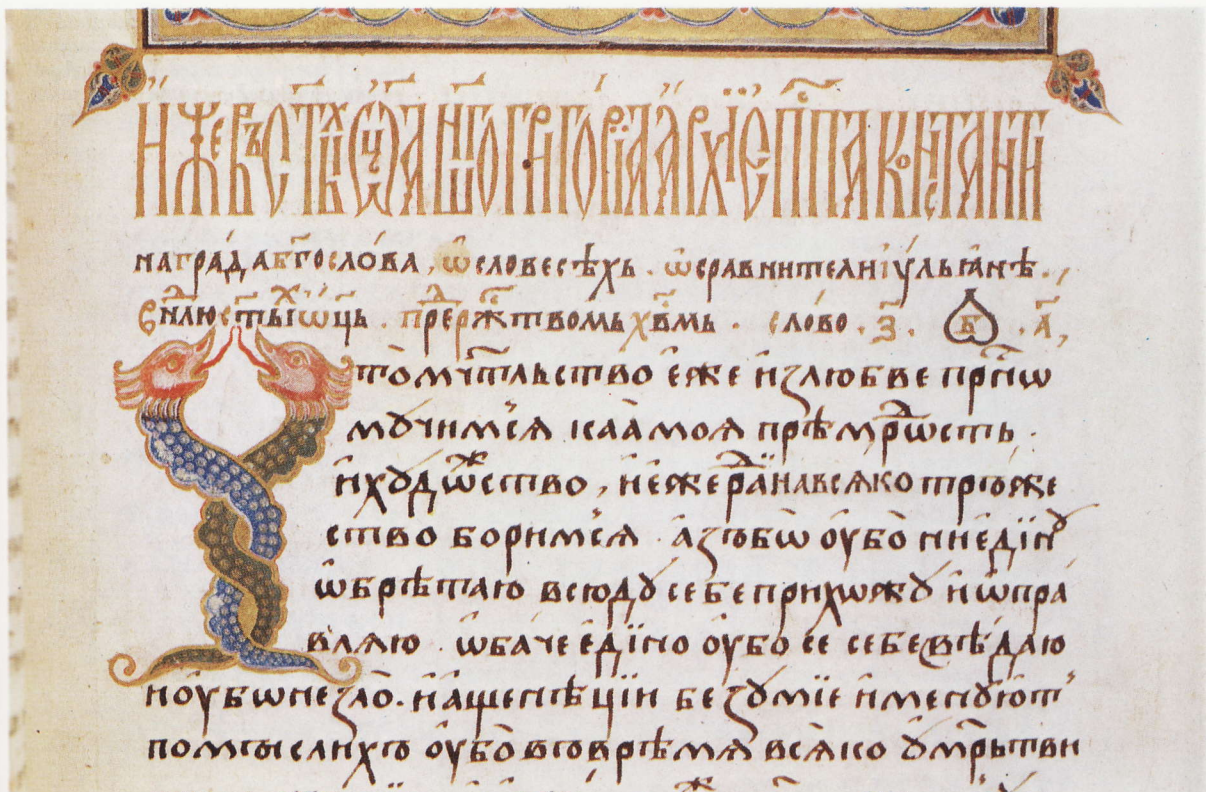 и҆́же въ ст҃хъ ѻ҆ц҃а на́шⷢ҇о григо́рїа а҆рхїепⷭ҇кпа конⷭ҇танти
награ́да бг҃осло́ва, ѡ҆ словесѣ́хь . ѡ сравнителни і҆ѹльꙗ́нѣ .,
ст҃ыⷯ ѡ҆ц҃ь . прⷣерⷤствомь хв҃мь . сло́во . з҃ . Б . а҃,
то мч҃тльство е҆́же и҆злюбве прⷭ҇нѡ
мꙋчимсѧ каꙗ̀ моꙗ̀ прѣмⷣрѡсть .
и҆ хꙋдѡⷤство , и҆ е҆́же ра́ди на всѧко тръже
ство боримсѧ . а҆зъ бѡ ᲂу҆бо̀ ни е҆ди́нꙋ
ѡ҆брѣтаю всюдꙋ себе прихѡждꙋ и҆ ѡ҆пра
влꙗю . ѡ҆баче е҆ди́но ᲂу҆бо се себе вѣ́даю
но ᲂу҆бѡ не ѕло̀ . и҆ а҆ще нѣцїи безꙋмїе и҆менꙋютъ
помыслихъ ᲂу҆бо̀ въ врѣ́мѧ всѧко ꙋ҆мрьтви